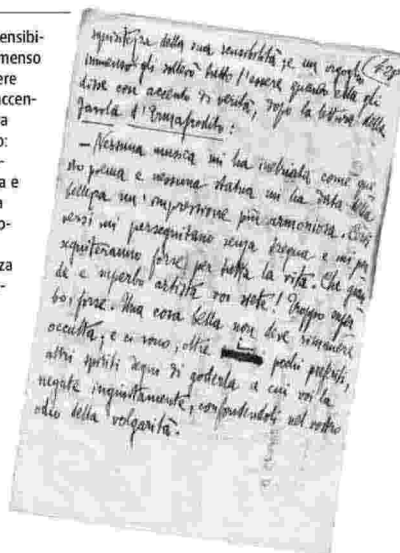 ensibi-
menso
ere
accen-
ra
o:
a è
a
za
squisitezza della sua sensibilità; e un orgoglio
immenso gli sollevò tutto l'essere quando ella gli
disse con accento di verità, dopo la lettura della
Favola d'Ermafrodito:
— Nessuna musica mi ha inebriata come que
sto poema e nessuna statua mi ha data della
bellezza un'impressione più armoniosa. Certi
versi mi perseguitano senza tregua e mi per
seguiteranno forse per tutta la vita. Che gran
de e superbo artista voi siete! Troppo super
bo, forse. Una cosa bella non dive rimanere
occulta; e ci sono, oltre pochi preferiti,
altri spiriti degni di goderla a cui voi la
negate ingiustamente, confondendoli nel vostro
odio della volgarità.